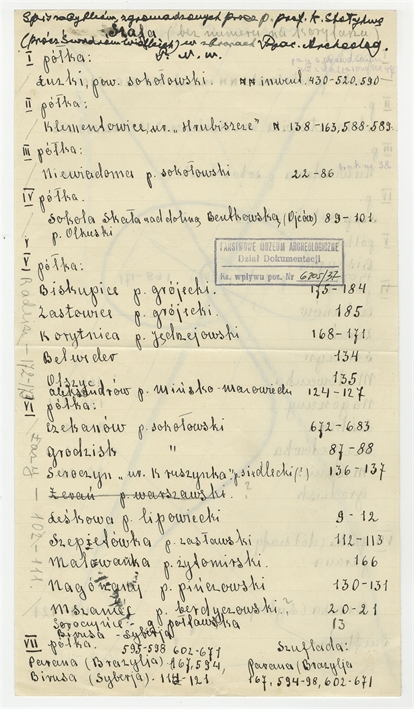 Spis zabytków zgromadzonych przez p. prof. K. Stołyhwę
w zbiorach Prac. Archeolog.
Szafa (bez numeru na korytarzu)
T. N. W.
I półka:
Żurki, pow. sokołowski NN inwent. 430-520, 590
II półka:
Klementowice, ur. "Hrubiszcze" N. 138-163, 588-589
III półka:
Niewiadoma p. sokołowski 22-86
IV półka.
Sokola Skała nad doliną Będkowską (Ojców) 89-101
p. Olkuski
PAŃSTWOWE MUZEUM ARCHEOLOGICZNE
Dział Dokumentacji
Ks. wpływu poz. Nr 6705/37
V półka:
Biskupice p. grójecki. 175-184
Zastowice p. grójecki. 185
Korytnica p. Jędrzejowski 168-171
Belweder 134
Olszyc 135
Aleksandrów p. Mińsko-mazowiecki 124-127
VI półka:
Czekanów p. sokołowski 672-683
Grodzisk " 87-88
Seroczyn "ur. Kruszynka" p. siedlecki (?) 136-137
Żerań p. warszawski.
Leśkowa p. lipowiecki 9-12
Szepetówka p. zasławski 112-113
Malewanka p. żytomirski. 166
Nagórzany p. pińczowski 130-131
Mszaniec p. berdyczowski? 20-21
Soroczyńce g. połtawska 13
Birusa - Syberja
595-598 602-671
VII półka.
Parana (Brazylja) 167, 594,
Birusa (Syberja). 114-121
Szuflada:
Parana (Brazylja
167, 594-98, 602-671
Kadzna - 172-173
Łazy - 102-111.